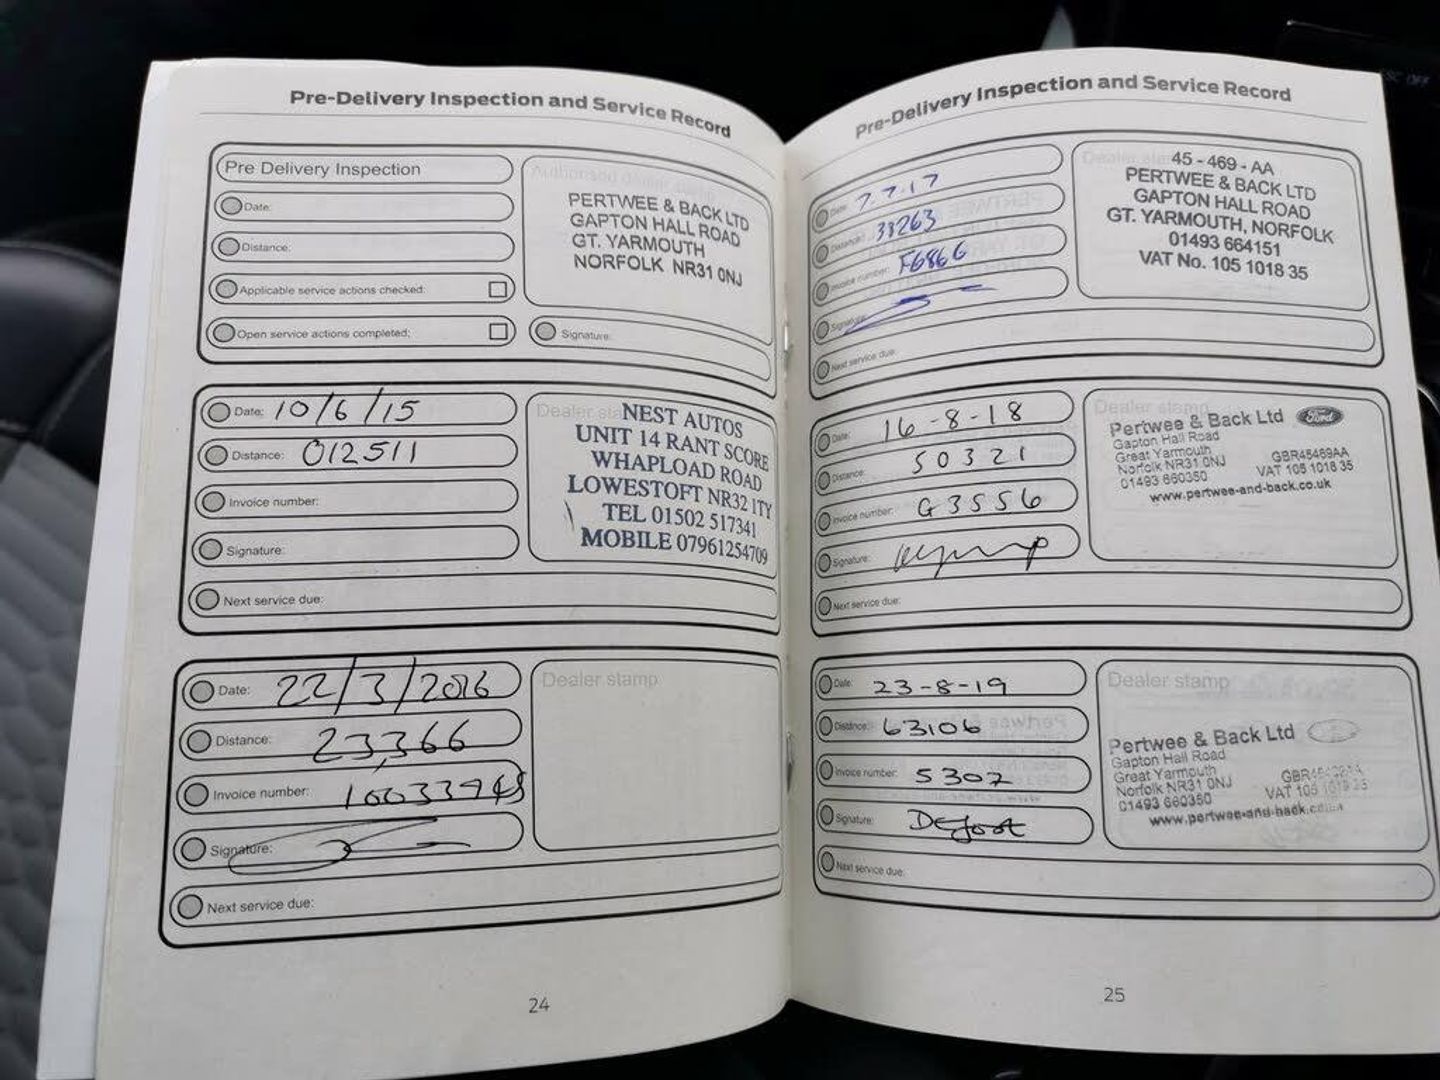 Pre-Delivery Inspection and Service Record
Pre Delivery Inspection
Date:
Distance:
Applicable service actions checked:
Open service actions completed:
Authorised dealer
PERTWEE & BACK LTD
GAPTON HALL ROAD
GT. YARMOUTH
NORFOLK NR31 0NJ
Signature:
Date: 10/6/15
Distance: 012511
Invoice number:
Signature:
Next service due:
Dealer
NEST AUTOS
UNIT 14 RANT SCORE
WHAPLOAD ROAD
LOWESTOFT NR32 1TY
TEL 01502 517341
MOBILE 07961254709
Date: 22/3/2016
Distance: 23,366
Invoice number:
Signature:
Next service due:
Dealer stamp
24
Pre-Delivery Inspection and Service Record
Date: 7.7.17
Distance: 38263
Invoice number: F6866
Signature:
Next service due:
Dealer
45 - 469 - AA
PERTWEE & BACK LTD
GAPTON HALL ROAD
GT. YARMOUTH, NORFOLK
01493 664151
VAT No. 105 1018 35
Date: 16-8-18
Distance: 50321
Invoice number: G3556
Signature:
Next service due:
Dealer stamp
Pertwee & Back Ltd Ford
Gapton Hall Road
Great Yarmouth
Norfolk NR31 0NJ GBR45469AA
01493 660350 VAT 105 1018 35
www.pertwee-and-back.co.uk
Date: 23-8-19
Distance: 63106
Invoice number: 5302
Signature:
Next service due:
Dealer stamp
Pertwee & Back Ltd
Gapton Hall Road
Great Yarmouth
Norfolk NR31 0NJ
01493 660350 VAT 105 1018 35
www.pertwee-and-back.co.uk
25